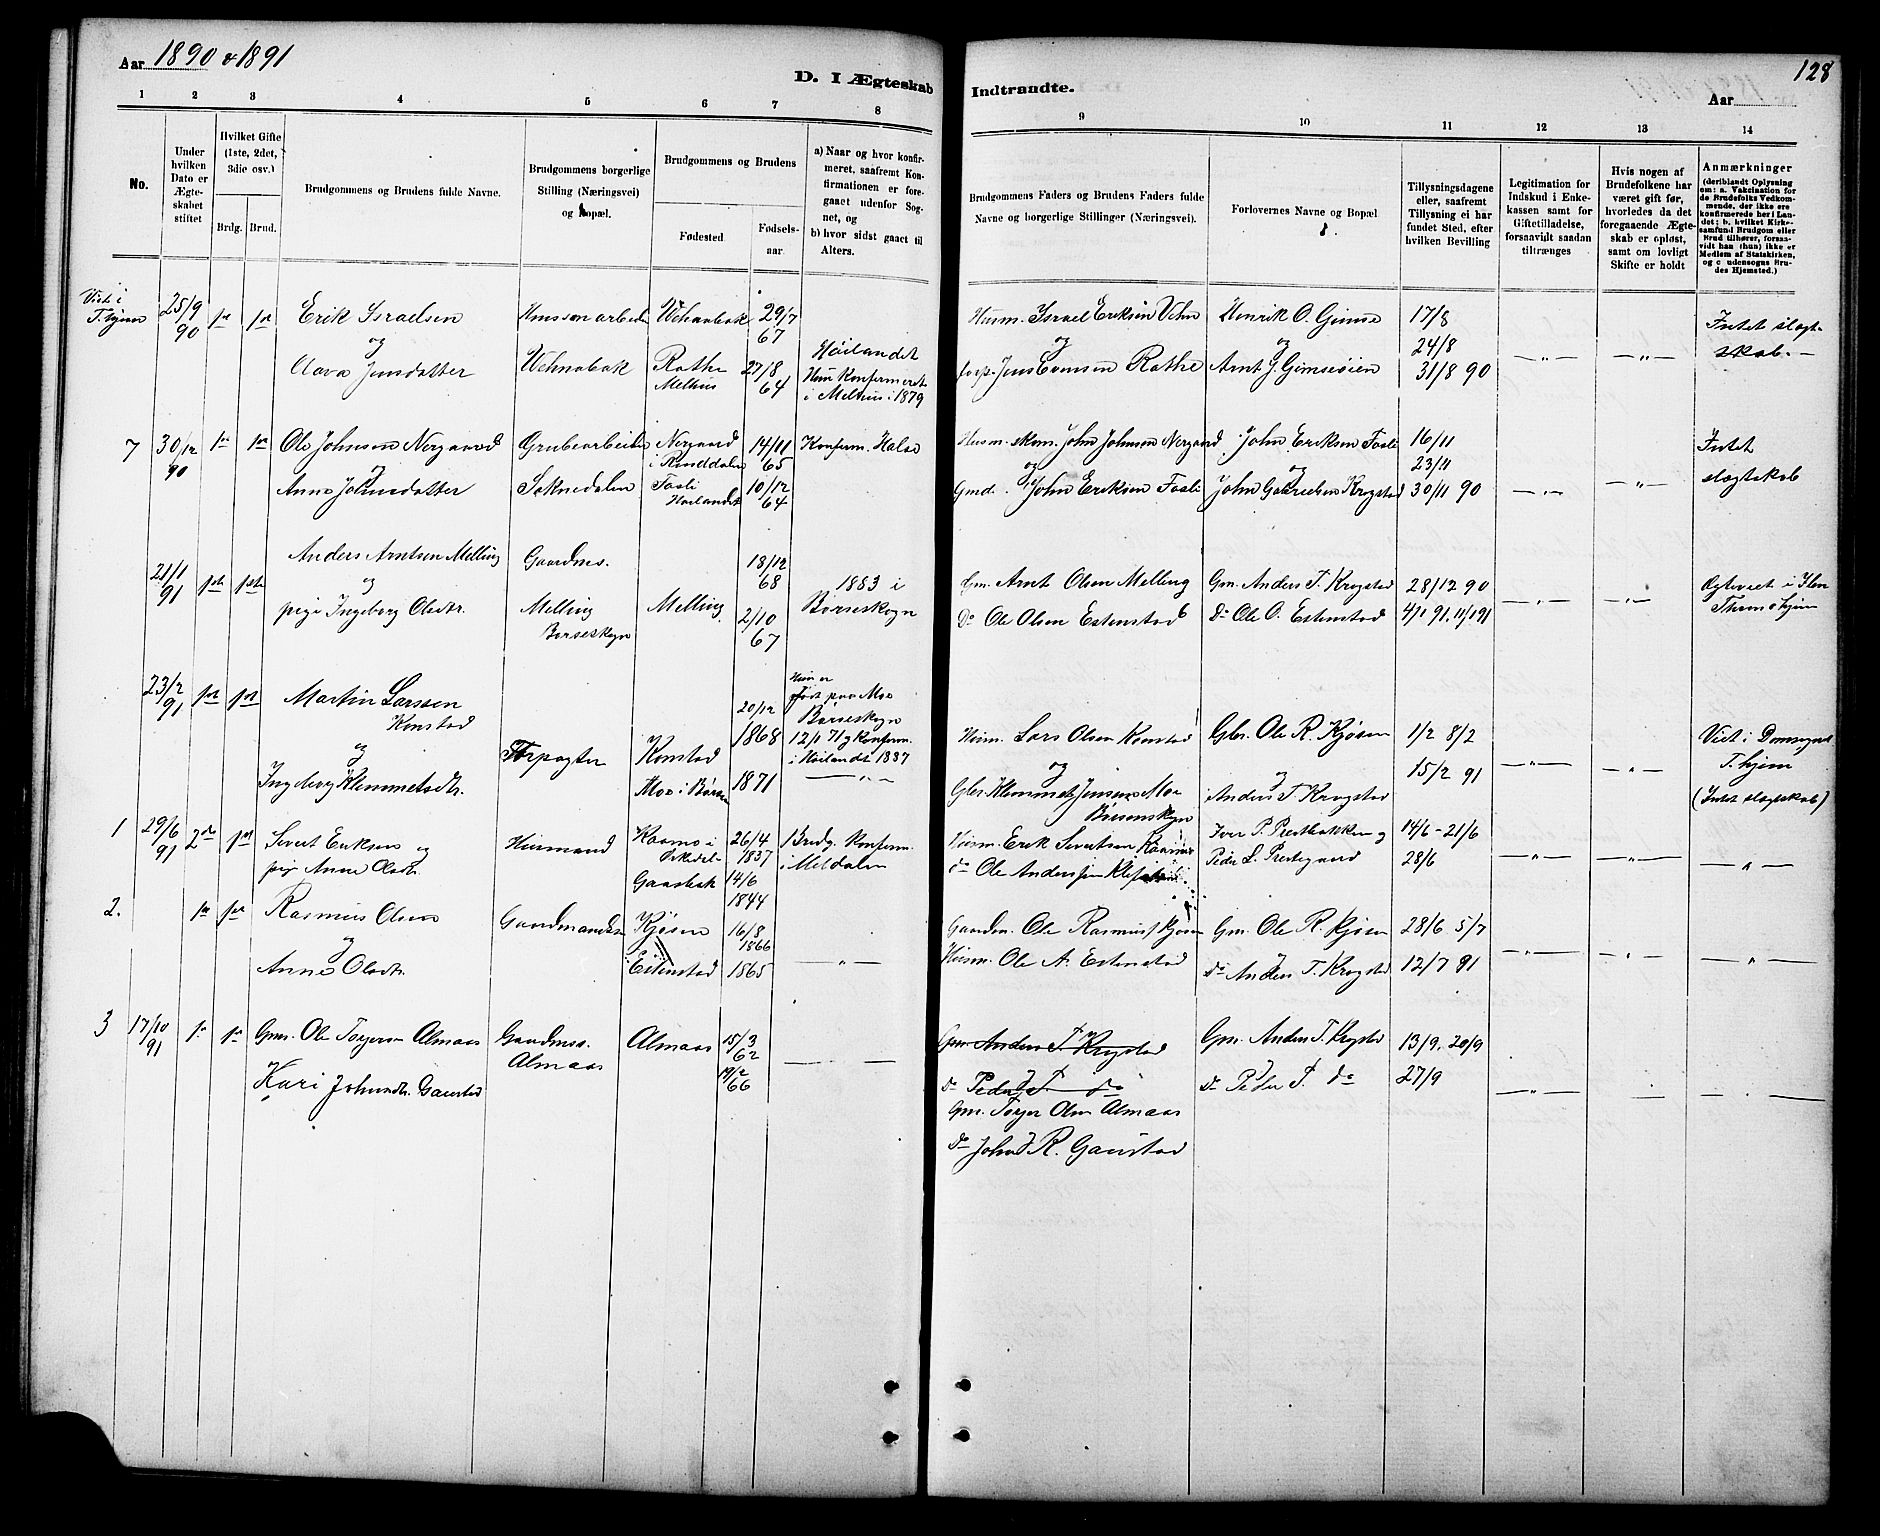 Aar 1890 & 1891
D. I Ægteskab
Indtraadte.
128
Aar
1 2 3 4 5 6 7 8 9 10 11 12 13 14
No.
Under hvilken Dato er Ægteskabet stiftet
Hvilket Gifte (1ste, 2det, 3die osv.)
Brdg. Brud.
Brudgommens og Brudens fulde Navne.
Brudgommens borgerlige Stilling (Næringsvei) og Bopæl.
Brudgommens og Brudens
Fødested. Fødselsaar.
a) Naar og hvor konfirmeret, saafremt Konfirmationen er foregaaet udenfor Sognet, og
b) hvor sidst gaaet til Alters.
Brudgommens Faders og Brudens Faders fulde Navne og borgerlige Stillinger (Næringsvei).
Forlovernes Navne og Bopæl
Tillysningsdagene eller, saafremt Tillysning ei har fundet Sted, efter hvilken Bevilling
Legitimation for Indskud i Enkekassen samt for Giftetilladelse, forsaavidt saadan tiltrænges
Hvis nogen af Brudefolkene har været gift før, hvorledes da det foregaaende Ægteskab er opløst, samt om lovligt Skifte er holdt
Anmærkninger (deriblandt Oplysning om: a. Vakcination for de Brudefolks Vedkommende, der ikke ere konfirmerede her i Landet; b. hvilket Kirkesamfund Brudgom eller Brud tilhører, forsaavidt han (hun) ikke er Medlem af Statskirken, og c udensogns Brudes Hjemsted.)
Viet i T.hjem
25/9 90
Erik Israelsen
og
Jonsdatter
29/7 67
Rathe Melhus
27/8 64
Høilandet
Hun konfirmeret i Melhus i 1879
Husm. Israel Eriksen
og
Rathe
Henrik O. Gimse
og
Arnt J. Gimseøien
17/8
24/8
31/8 90
Intet slægtskab.
7
30/12 90
Ole Johnsen Nergaard
og
Anne Johnsdatter
Grubearbeider
Soknedalen
Nergaard i Rinddalen
Fosli Høilandet
14/11 65
10/12 64
Konfirm. Halse
John Johnsen Nergaard
og
Gmd. John Eriksen Fosli
John Eriksen Fosli
og
John Gabrielsen Krogstad
16/11
23/11
30/11 90
Intet slægtskab
21/1 91
Anders Arntsen Melling
og
pige Ingeborg Olsdtr.
Gaardms.
Melling Børseskogn
Melling
18/12 68
2/10 67
1883 i Børseskogn
Gm. Arnt Olsen Melling
Do Ole Olsen Estenstad
Gm. Anders T. Krogstad
Do Ole O. Estenstad
28/12 90
4/1 91. 11/1 91
23/2 91
Martin Larssen Konstad
og
Ingeborg Klemmetsdtr.
Konstad
Moe i Børsen
20/12 1868
1871
Hun er født paa Moe Børseskogn 12/1 71 og konfirm. i Høilandt 1887
Husm. Lars Olsen Konstad
og
Gbr. Klemmet Jensen Moe Børsenskogn
Gbr. Ole R. Kjøsen
og
Anders T. Krogstad
1/2 8/2
15/2 91
Viet i Domsogns T.hjem
(Intet slægtskab)
1
29/6 91
2de
Sivert Eriksen og
pige Anne Olsdtr.
Husmand
Kaasmo i Orkedal
Gaasbak
26/4 1837
14/6 1844
Brudg. konfirm. i Meldalen
Husm. Erik Sivertsen
do Ole Anderssen
Iver P. Prestbakken og
Peder L. Prestegaard
14/6 - 21/6
28/6
2.
Rasmus Olsen
og
Anne Olsdtr.
Kjøsen
Estenstad
16/8 1866
1865
Gaardm. Ole Rasmuss Kjøsen
Husm. Ole A. Estenstad
Gm. Ole R. Kjøsen
do Anders T. Krogstad
28/6 5/7
12/7 91
3
17/10 91
Gm. Ole Torgersen Almaas
Kari Johnsdtr. Gaustad
Gaardmss. Almaas
Almaas
15/3 62
66
Gm. Anders T. Krogstad
do Peder T. do
Gm. Torger Olsen Almaas
do John R. Gaustad
Gm. Anders T. Krogstad
do Peder T. do
13/9. 20/9
27/9